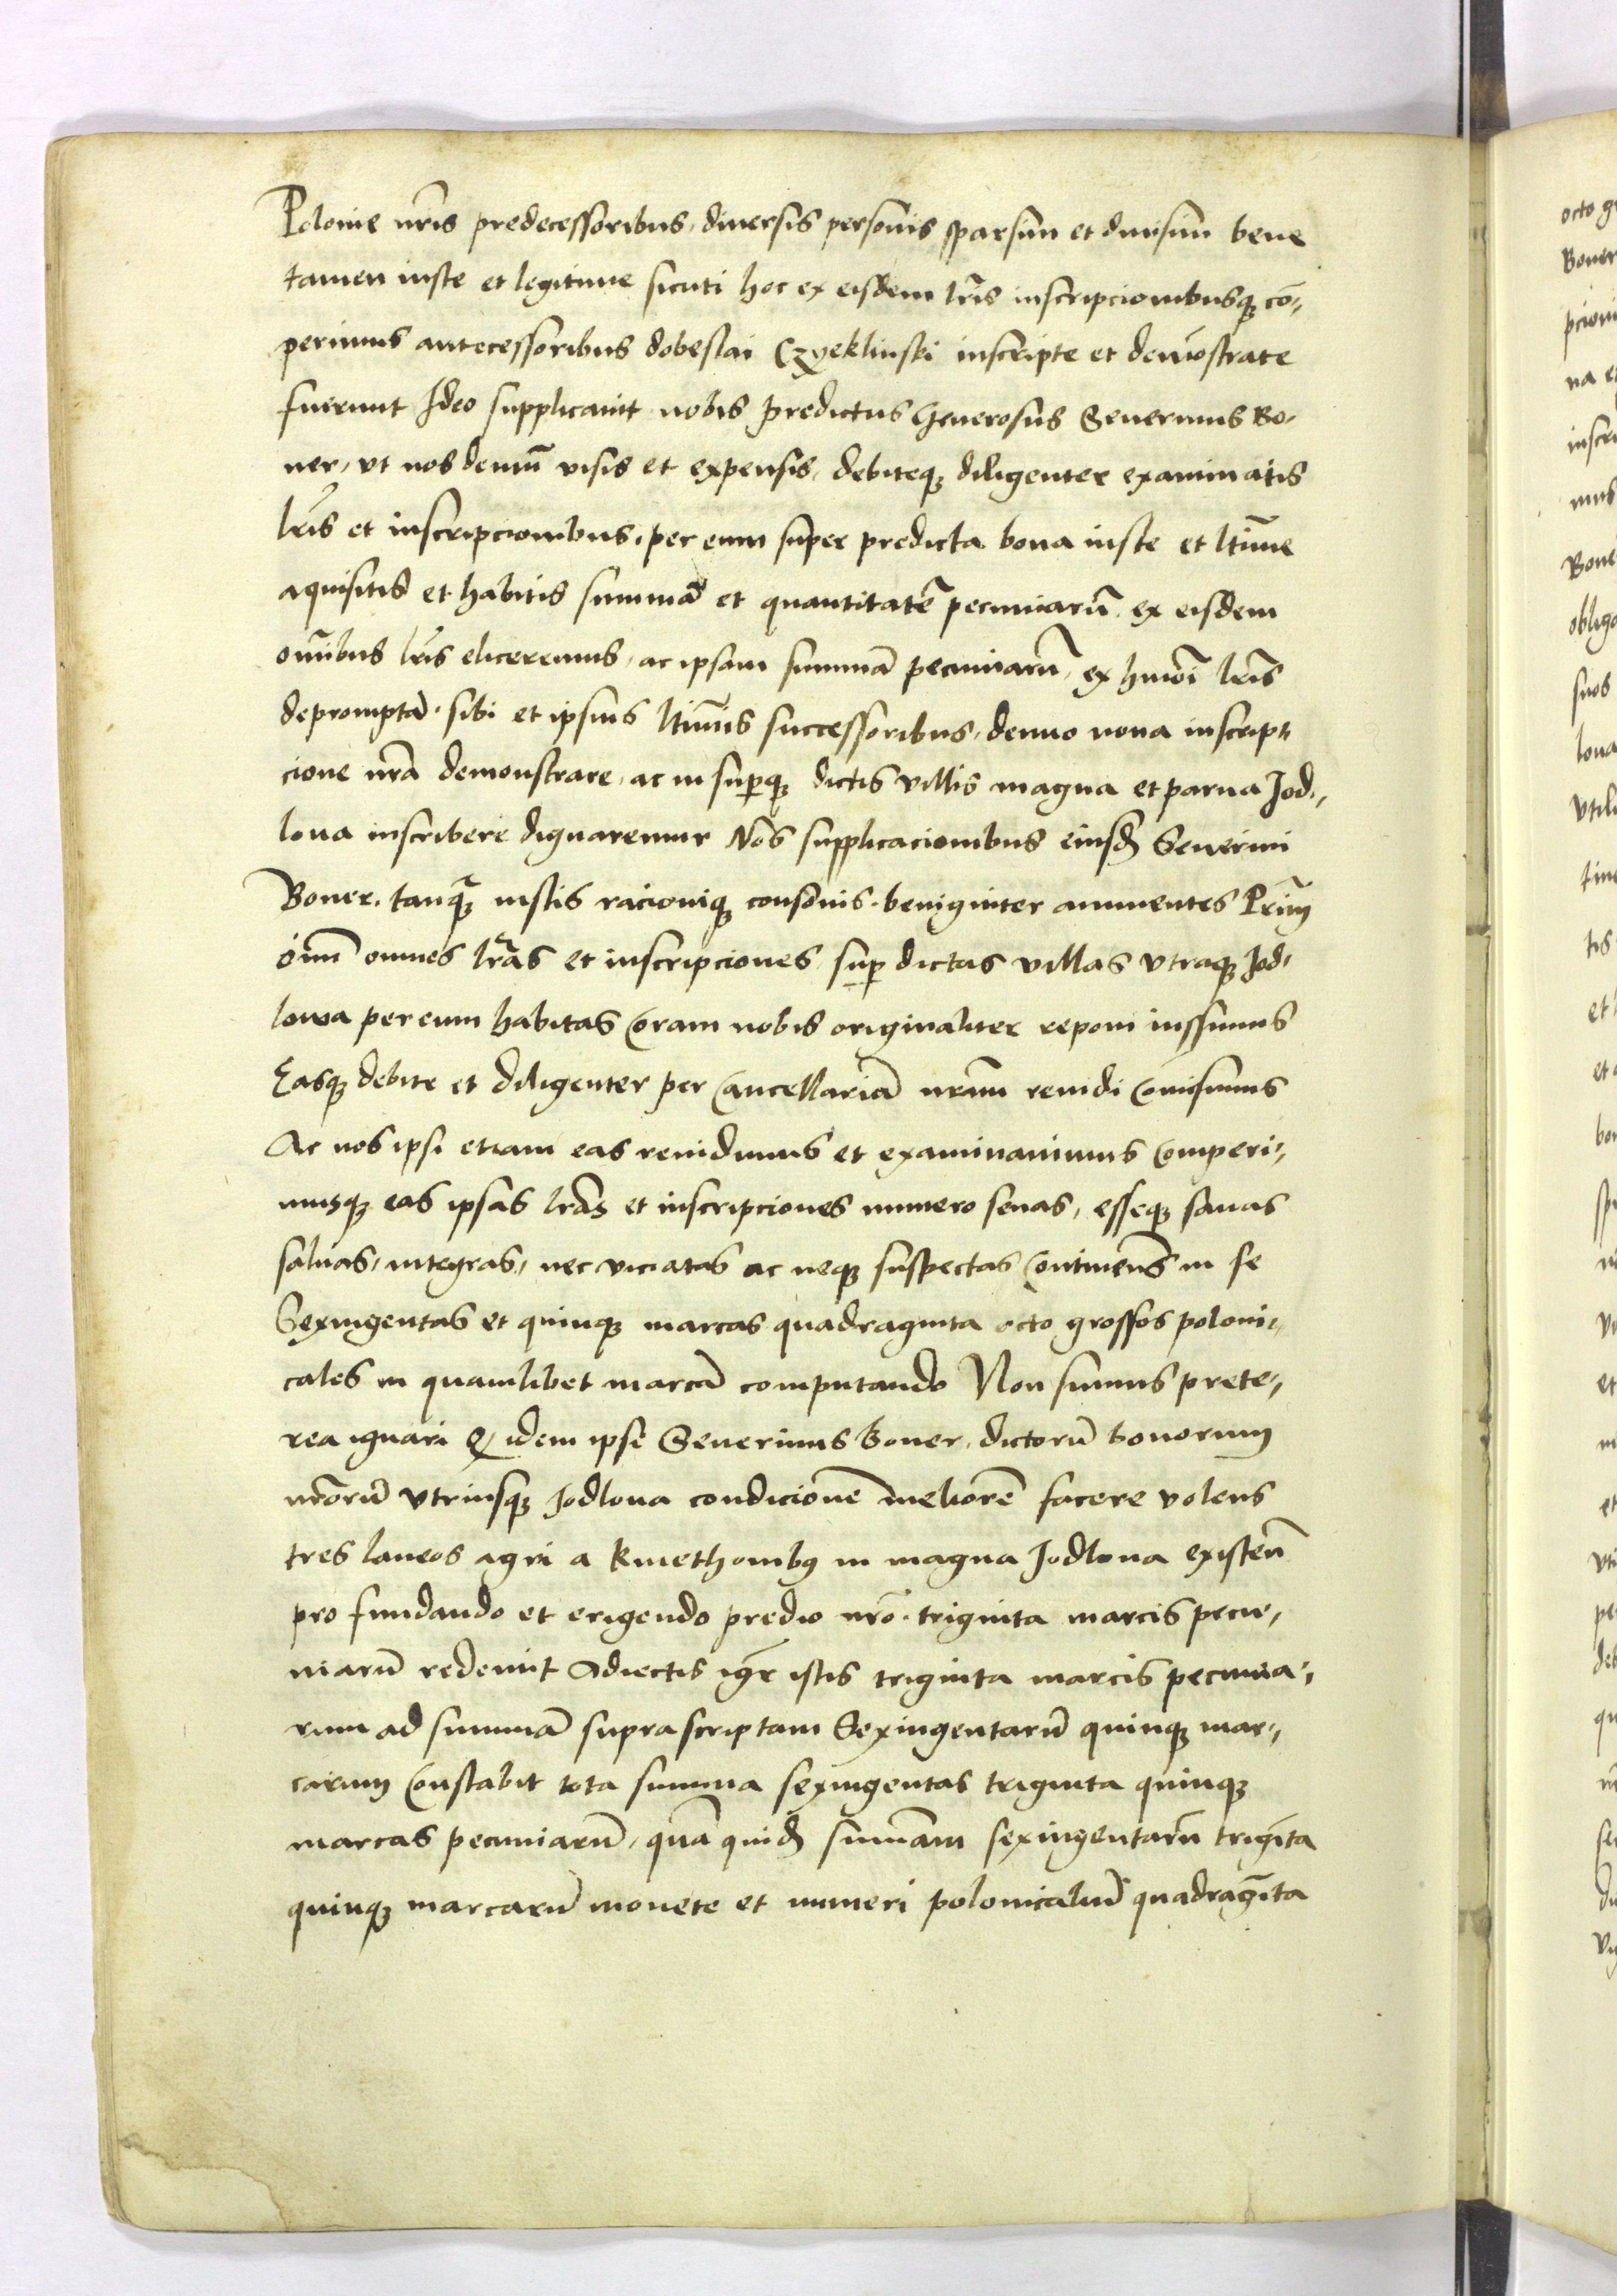 Polonie nrīs predecessoribus, diversis personis sparsim et divisim bene
tamen iuste et legitime sicuti hoc ex eisdem lrīs inscripcionibusqꝫ cō-
perimus antecessoribus dobeslai Czyeklinski inscripte et demōstrate
fuerunt Ideo supplicavit nobis predictus Generosus Severinus Bo-
ner, vt nos demū visis et expensis, debiteqꝫ diligenter examinatis
lrīs et inscripcionibus, per eum super predicta bona iuste et ltīme
aquisitis et habitis summā et quantitatē pecuniarū ex eisdem
om̄ibus lrīs eliceremus, ac ipsam summā pecuniarū, ex hmōi lrīs
depromptā, sibi et ipsius ltīmis successoribus, denuo nova inscrip-
cione nrā demonstrare, ac in suꝑqꝫ dictis villis magna et parva Jod-
lova inscribere dignaremur Nos supplicacionibus eiusd̄ Severini
Boner, tanqꝫ iustis racioniqꝫ consonis, benigniter annuentes Prīm
oīm omnes lrās et inscripciones suꝑ dictas villas vtraqꝫ Jod-
lowa per eum habitas Coram nobis originaliter reponi iussimus
Easqꝫ debite et diligenter per Cancellariā nrām revidi Comisimus
Ac nos ipsi etiam eas revidimus et examinavimus Comperi-
musqꝫ eas ipsas lrās et inscripciones numero senas, esseqꝫ sanas
salvas, integras, nec viciatas ac neqꝫ suspectas Continens̄ in se
Sexingentas et quinqꝫ marcas quadraginta octo grossos poloni-
cales in quamlibet marcā computando Non sumus prete-
rea ignari Q idem ipse Severinus Boner, dictorū bonorum
nrōrū vtriusqꝫ Jodlova condicionē meliorē facere volens
tres laneos agri a kmethonibꝰ in magna Jodlova existeñ
pro fundando et erigendo predio nrō, triginta marcis pecu-
niarū redemit Adiectis igr̄ istis triginta marcis pecunia-
rum ad summā supra scriptam Sexingentarū quinqꝫ mar-
carum Constabit tota summa sexingentas triginta quinqꝫ
marcas pecuniarū, quā quid̄ summam sexingentarū trigīta
quinqꝫ marcarū monete et numeri polonicaliū quadragīta